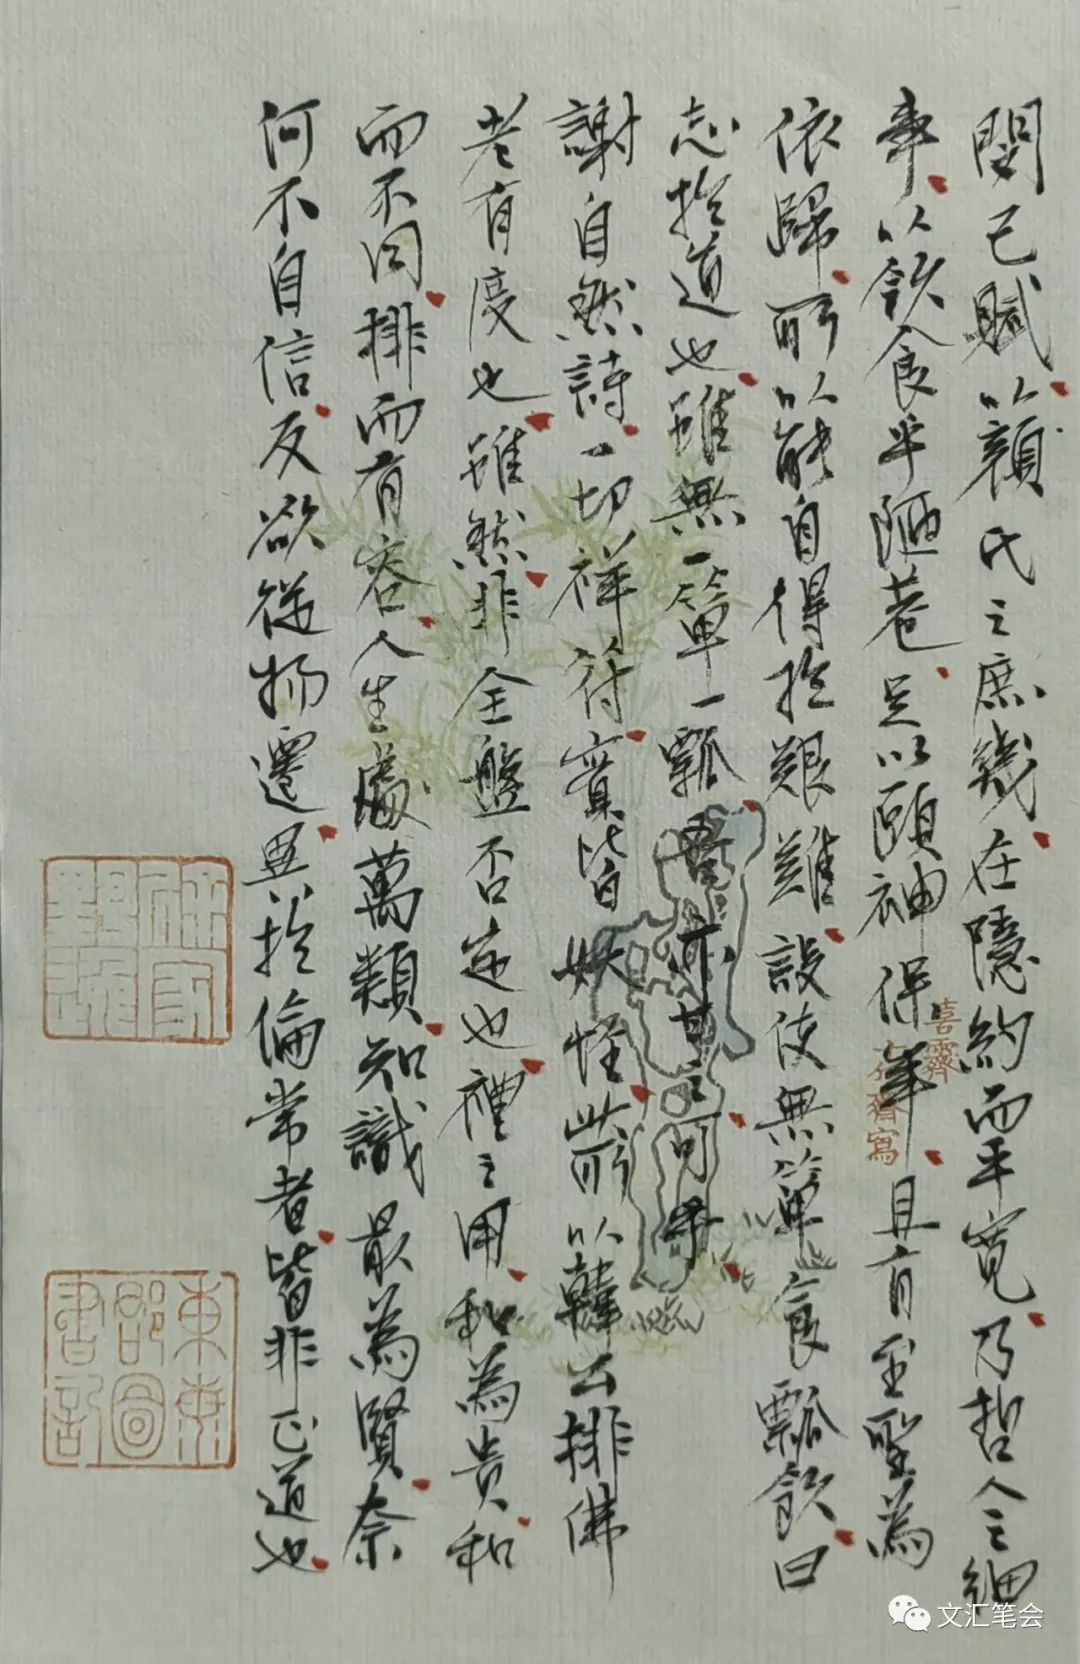 閔己賦以顏氏之庶幾在隱約而平寬乃哲人之細
事以飲食乎陋巷足以頤神保年且有至聖為
依歸所以能自得於艱難設使無簞食瓢飲曰
志於道也雖無一簞一瓢吾亦甘之可乎
謝自然詩一切祥符實皆妖怪前以韓公排佛
老有度也雖然非全盤否定也禮之用和為貴和
而不同排而有容人生處萬類知識最為賢奈
何不自信反欲從物遷異於倫常者皆非正道也
喜齋
齋寫
東萊郡圖書記
文汇笔会